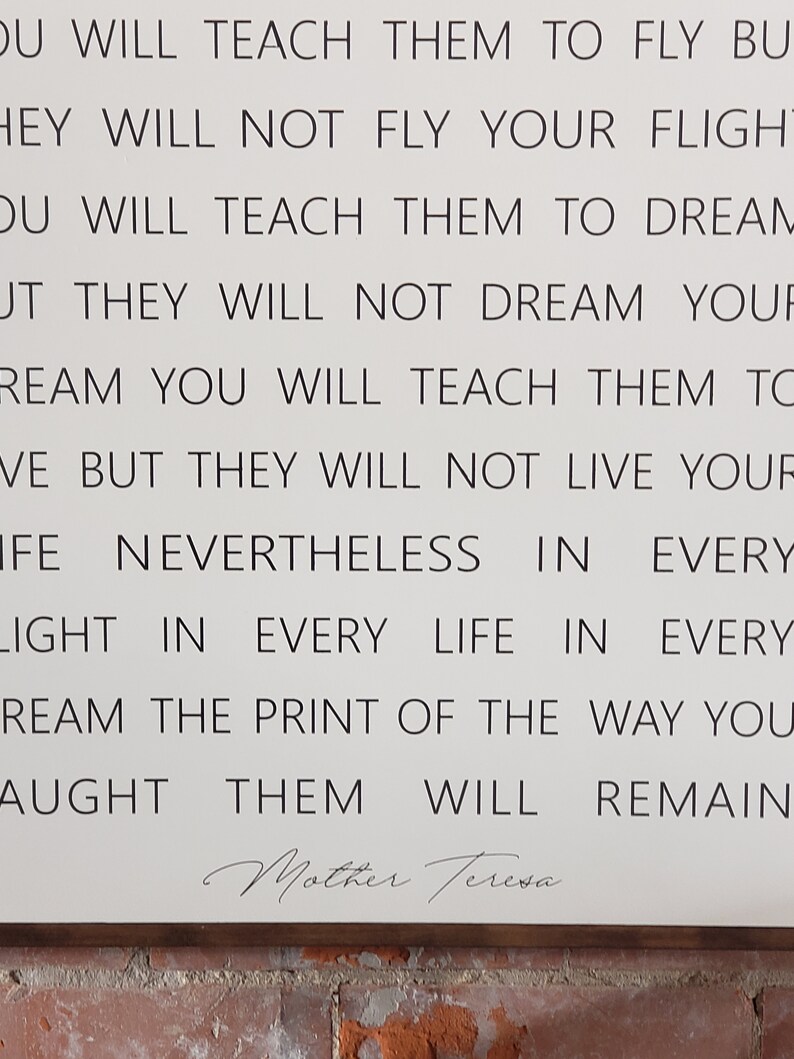 OU WILL TEACH THEM TO FLY BU
HEY WILL NOT FLY YOUR FLIGHT
OU WILL TEACH THEM TO DREAM
UT THEY WILL NOT DREAM YOUR
REAM YOU WILL TEACH THEM TO
VE BUT THEY WILL NOT LIVE YOUR
IFE NEVERTHELESS IN EVERY
LIGHT IN EVERY LIFE IN EVERY
REAM THE PRINT OF THE WAY YOU
AUGHT THEM WILL REMAIN
Mother Teresa